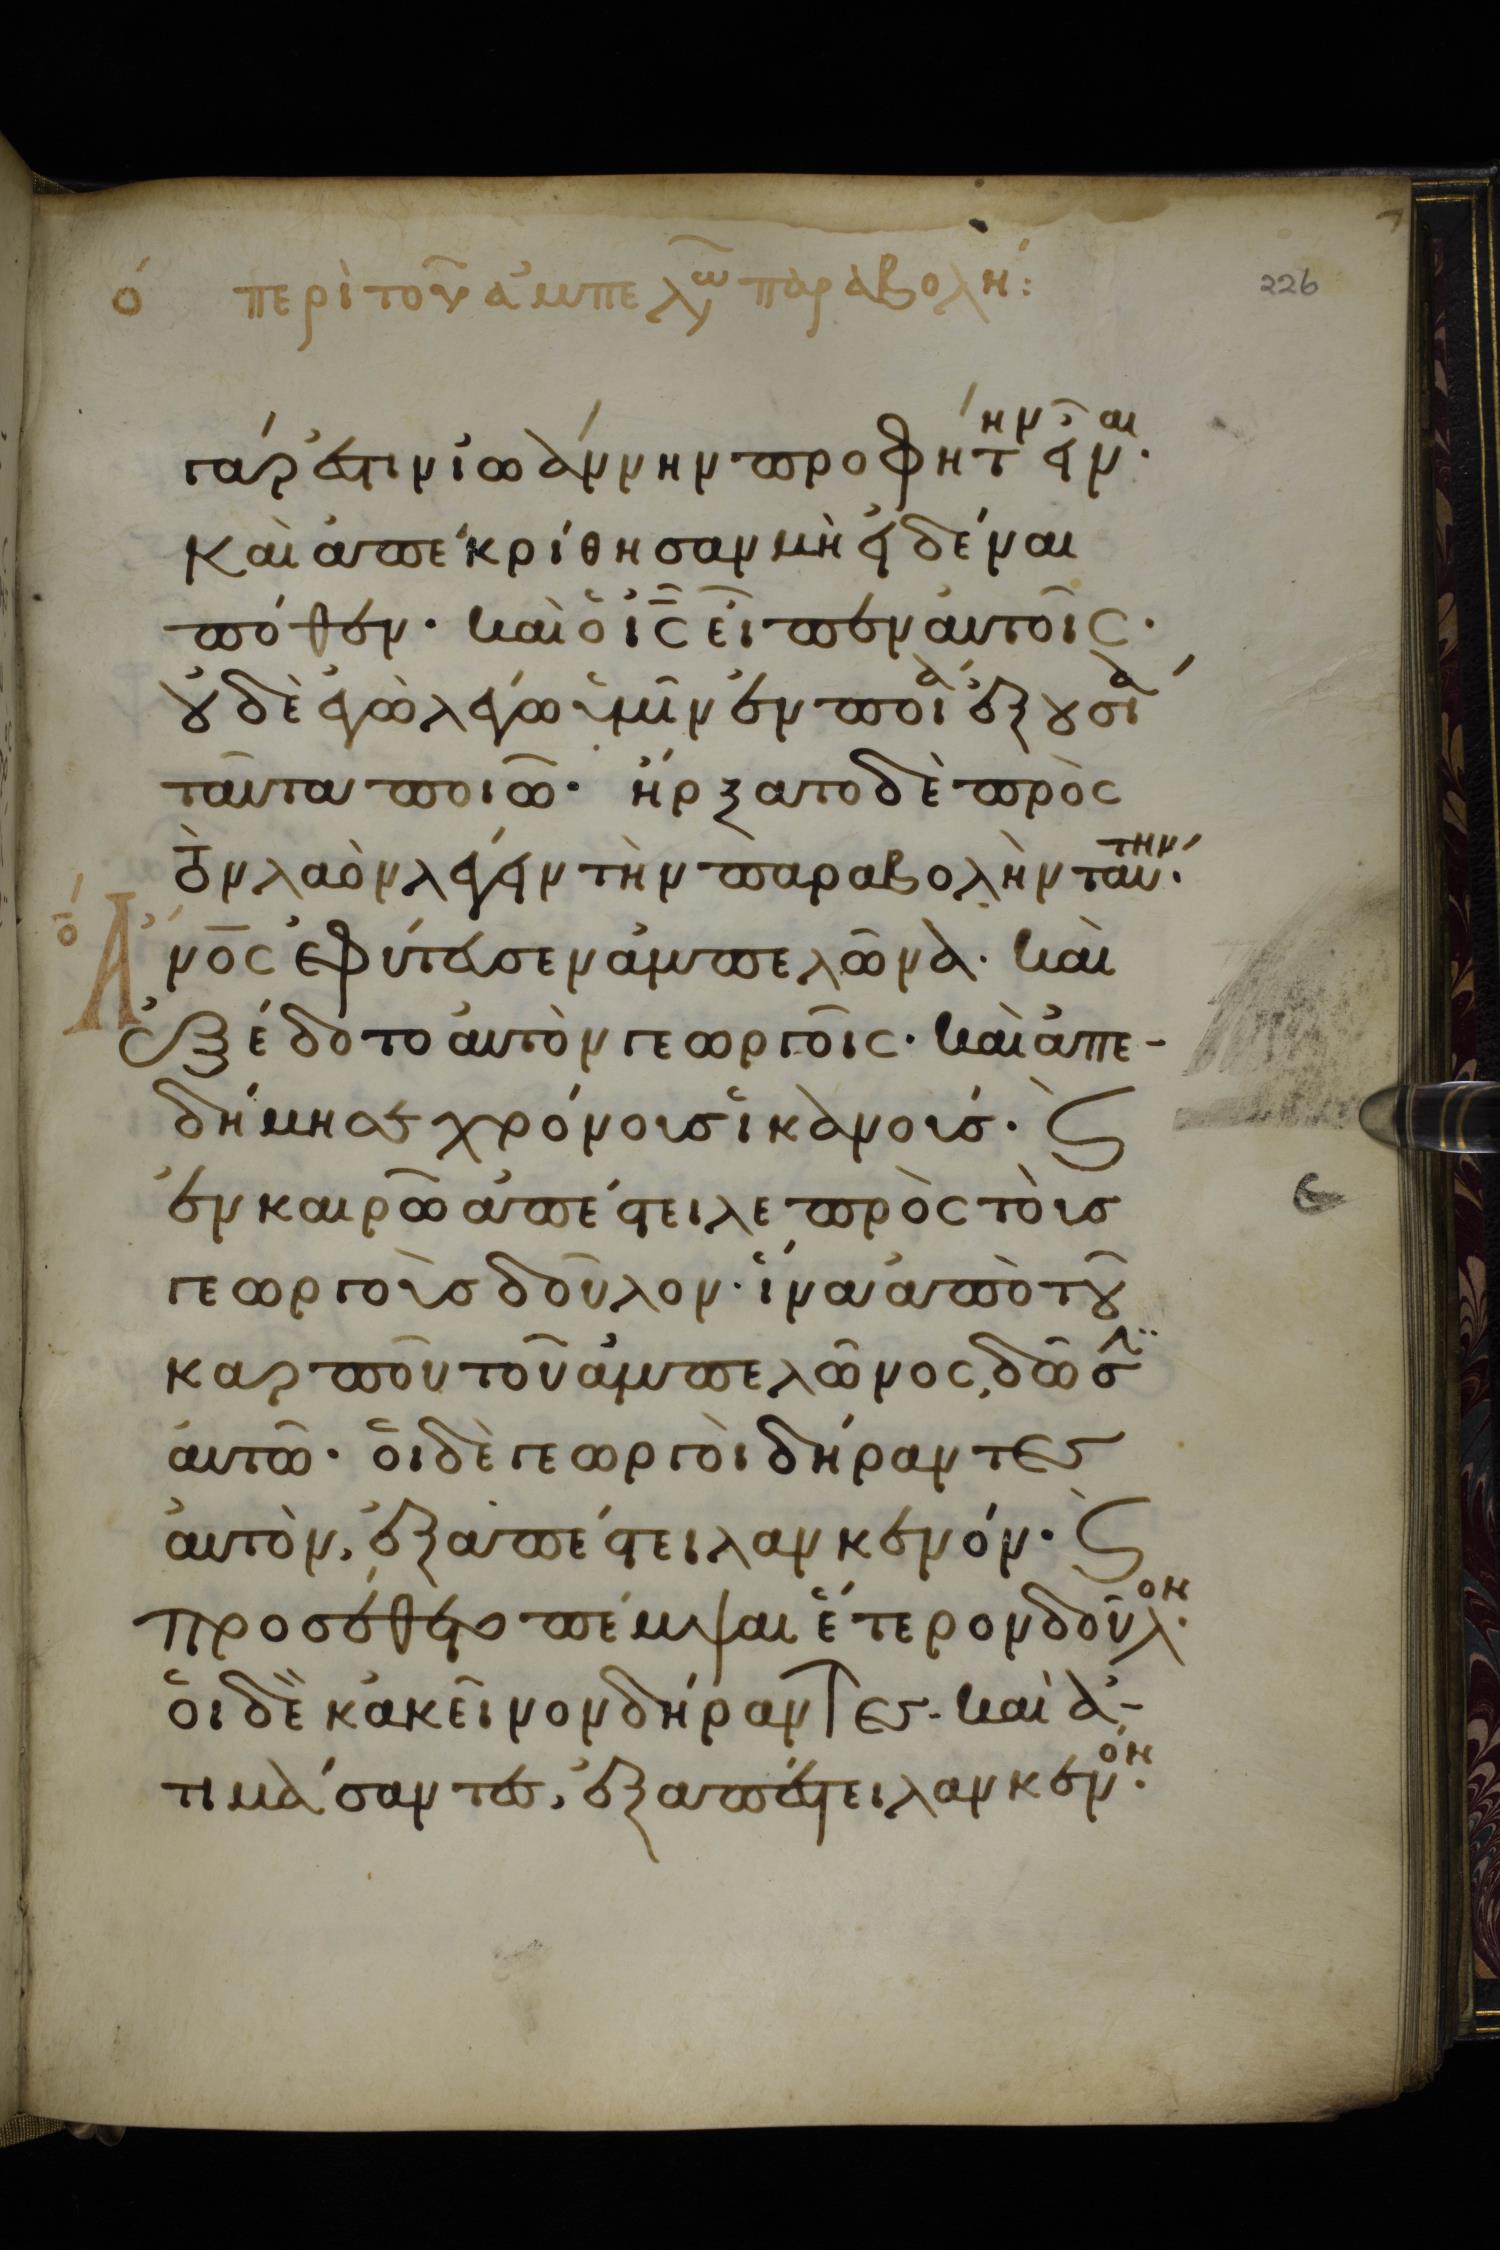 ο̄ περὶ τοῦ ἀμπελῶν παραβολή: 226
γάρ ἐστιν ἰωάννην προφήτην εἶναι·
Καὶ ἀπεκρίθησαν μὴ εἰδέναι
πόθεν· καὶ ὁ ι̅ς̅ εἶπεν αὐτοῖς·
οὐδὲ ἐγὼ λέγω ὑμῖν ἐν ποία ἐξουσία
ταῦτα ποιῶ· ἤρξατο δὲ πρὸς
τὸν λαὸν λέγειν τὴν παραβολὴν ταύτην·
ο̄ Ἄνο̅ς ἐφύτευσεν ἀμπελῶνα· καὶ
ἐξέδοτο αὐτὸν γεωργοῖς· καὶ ἀπε-
δήμησε χρόνους ἱκανούς· ϗ
ἐν καιρῶ ἀπέστειλε πρὸς τοὺς
γεωργοὺς δοῦλον· ἵνα ἀπὸ τοῦ
καρποῦ τοῦ ἀμπελῶνος, δῶσιν
αὐτῶ· οἱ δὲ γεωργοὶ δήραντες
αὐτὸν, ἐξαπέστειλαν κενόν· ϗ
προσέθετο πέμψαι ἕτερον δοῦλον·
οἱ δὲ κἀκεῖνον δήραντες· καὶ ἀ-
τιμάσαντες, ἐξαπέστειλαν κενόν·